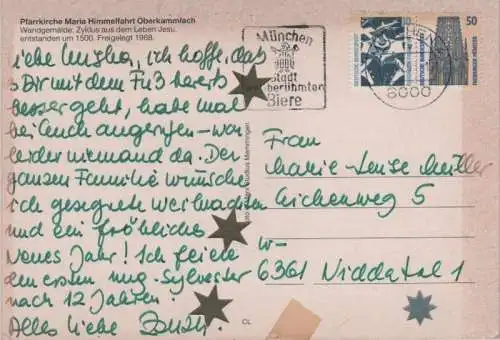 Pfarrkirche Maria Himmelfahrt Oberkammlach
Wandgemälde: Zyklus aus dem Leben Jesu,
entstanden um 1500. Freigelegt 1968.
liebe , ich hoffe, daß
Dir mit dem Fuß bereits
besser geht, habe mal
bei Euch angerufen - war
leider niemand da. Der
ganzen Familie wünsche
ich gesegnete Weihnachten
und ein fröhliches
Neues Jahr! Ich feiere
den ersten Sylvester
nach 12 Jahren!
Alles Liebe
München
Stadt
berühmten
Biere
8000
50
DEUTSCHE BUNDESPOST
DEUTSCHE BUNDESPOST
FREIBURGER MÜNSTER
Frau
Marie Luise Müller
Eichenweg 5
W-
6361 Niddatal 1
CL